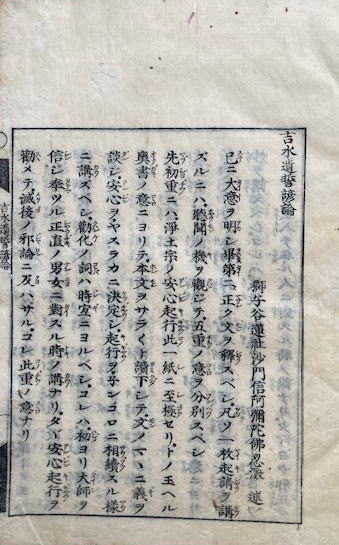 吉水遺誓諺論
獅子谷蓮社沙門信阿彌陀佛忍澂 述
已ニ大意ヲ明シ畢第二正ク文ヲ釋スベシ凡ソ一枚起請ヲ講
ズルニハ聽聞ノ機ヲ觀ジテ五重ノ意ヲ分別スベシ
先初重ニハ淨土宗ノ安心起行此一紙ニ至極セリトノ玉ヘル
奥書ノ意ニヨリテ本文ヲサラ〱ト讀下シテ文ノマヽニ義ヲ
談シ安心ヲヤスラカニ決定シ起行ヲ子ンコロニ相續スル樣
ニ講スベシ勸化ノ詞ハ時宜ニヨルベシコレハ初ヨリ大師ヲ
信シ奉ツル正直ノ男女ニ對スル時ノ講ナリタヾ安心起行ヲ
勸メテ滅後ノ邪論ニ及ハサルコレ此重ノ意ナリ
吉水遺誓諺論